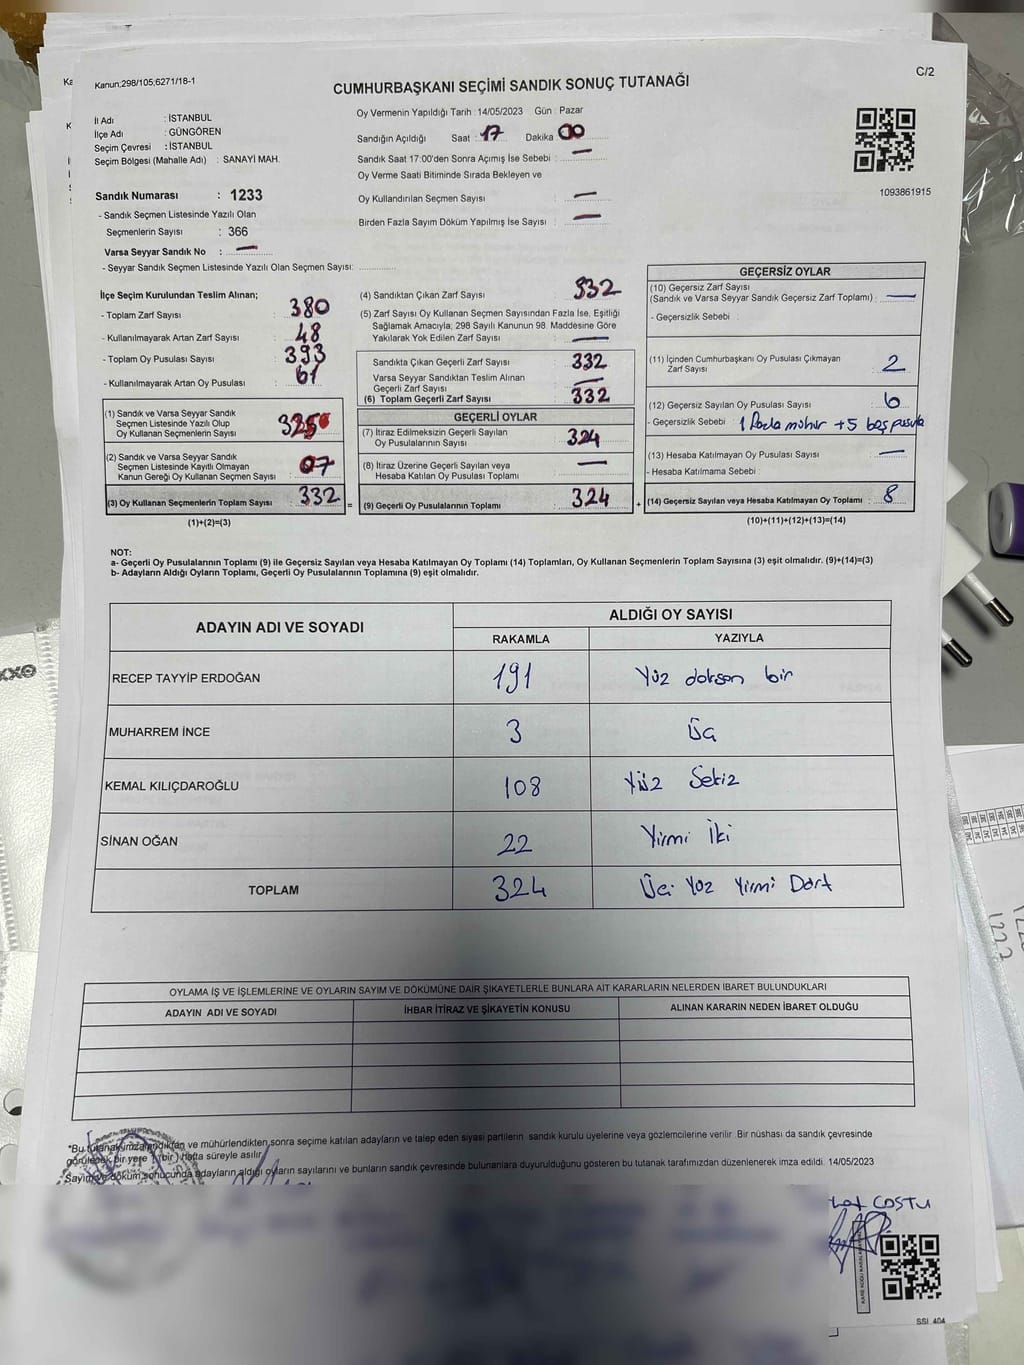 Kanun;298/105;6271/18-1
C/2
CUMHURBAŞKANI SEÇİMİ SANDIK SONUÇ TUTANAĞI
İl Adı : İSTANBUL
İlçe Adı : GÜNGÖREN
Seçim Çevresi : İSTANBUL
Seçim Bölgesi (Mahalle Adı) : SANAYİ MAH.
Sandık Numarası : 1233
- Sandık Seçmen Listesinde Yazılı Olan
Seçmenlerin Sayısı : 366
Varsa Seyyar Sandık No : —
- Seyyar Sandık Seçmen Listesinde Yazılı Olan Seçmen Sayısı: ............
Oy Vermenin Yapıldığı Tarih : 14/05/2023 Gün : Pazar
Sandığın Açıldığı Saat : 17 Dakika : 00
Sandık Saat 17:00'den Sonra Açımış İse Sebebi : —
Oy Verme Saati Bitiminde Sırada Bekleyen ve
Oy Kullandırılan Seçmen Sayısı : —
Birden Fazla Sayım Döküm Yapılmış İse Sayısı : —
1093861915
İlçe Seçim Kurulundan Teslim Alınan;
- Toplam Zarf Sayısı : 380
- Kullanılmayarak Artan Zarf Sayısı : 48
- Toplam Oy Pusulası Sayısı : 393
- Kullanılmayarak Artan Oy Pusulası : 61
(1) Sandık ve Varsa Seyyar Sandık
Seçmen Listesinde Yazılı Olup
Oy Kullanan Seçmenlerin Sayısı : 325
(2) Sandık ve Varsa Seyyar Sandık
Seçmen Listesinde Kayıtlı Olmayan
Kanun Gereği Oy Kullanan Seçmen Sayısı : 07
(3) Oy Kullanan Seçmenlerin Toplam Sayısı : 332
(1)+(2)=(3)
(4) Sandıktan Çıkan Zarf Sayısı : 332
(5) Zarf Sayısı Oy Kullanan Seçmen Sayısından Fazla İse, Eşitliği
Sağlamak Amacıyla; 298 Sayılı Kanunun 98. Maddesine Göre
Yakılarak Yok Edilen Zarf Sayısı : —
Sandıkta Çıkan Geçerli Zarf Sayısı : 332
Varsa Seyyar Sandıktan Teslim Alınan
Geçerli Zarf Sayısı : —
(6) Toplam Geçerli Zarf Sayısı : 332
GEÇERLİ OYLAR
(7) İtiraz Edilmeksizin Geçerli Sayılan
Oy Pusulalarının Sayısı : 324
(8) İtiraz Üzerine Geçerli Sayılan veya
Hesaba Katılan Oy Pusulası Toplamı : —
(9) Geçerli Oy Pusulalarının Toplamı : 324
=
+
GEÇERSİZ OYLAR
(10) Geçersiz Zarf Sayısı
(Sandık ve Varsa Seyyar Sandık Geçersiz Zarf Toplamı) : —
- Geçersizlik Sebebi :
(11) İçinden Cumhurbaşkanı Oy Pusulası Çıkmayan
Zarf Sayısı : 2
(12) Geçersiz Sayılan Oy Pusulası Sayısı : 6
- Geçersizlik Sebebi : 1 fazla mühür + 5 boş pusula
(13) Hesaba Katılmayan Oy Pusulası Sayısı : —
- Hesaba Katılmama Sebebi :
(14) Geçersiz Sayılan veya Hesaba Katılmayan Oy Toplamı : 8
(10)+(11)+(12)+(13)=(14)
NOT:
a- Geçerli Oy Pusulalarının Toplamı (9) ile Geçersiz Sayılan veya Hesaba Katılmayan Oy Toplamı (14) Toplamları, Oy Kullanan Seçmenlerin Toplam Sayısına (3) eşit olmalıdır. (9)+(14)=(3)
b- Adayların Aldığı Oyların Toplamı, Geçerli Oy Pusulalarının Toplamına (9) eşit olmalıdır.
ADAYIN ADI VE SOYADI
ALDIĞI OY SAYISI
RAKAMLA YAZIYLA
RECEP TAYYİP ERDOĞAN 191 Yüz doksan bir
MUHARREM İNCE 3 Üç
KEMAL KILIÇDAROĞLU 108 Yüz Sekiz
SİNAN OĞAN 22 Yirmi İki
TOPLAM 324 Üç Yüz Yirmi Dört
OYLAMA İŞ VE İŞLEMLERİNE VE OYLARIN SAYIM VE DÖKÜMÜNE DAİR ŞİKAYETLERLE BUNLARA AİT KARARLARIN NELERDEN İBARET BULUNDUKLARI
ADAYIN ADI VE SOYADI İHBAR İTİRAZ VE ŞİKAYETİN KONUSU ALINAN KARARIN NEDEN İBARET OLDUĞU
*Bu tutanak imzalandıktan ve mühürlendikten sonra seçime katılan adayların ve talep eden siyasi partilerin sandık kurulu üyelerine veya gözlemcilerine verilir. Bir nüshası da sandık çevresinde
görülecek bir yere 1 (bir) hafta süreyle asılır.
Sayım ve döküm sonucunda adayların aldığı oyların sayılarını ve bunların sandık çevresinde bulunanlara duyurulduğunu gösteren bu tutanak tarafımızdan düzenlenerek imza edildi. 14/05/2023
COSTU
SSI 404